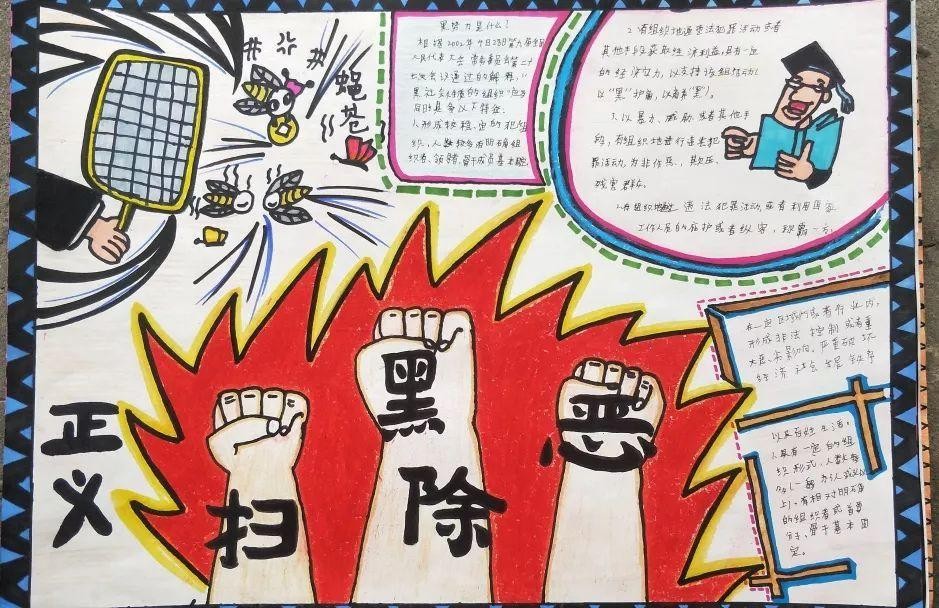 蝇苍
黑势力是什么?
根据2002年4月28日第九届全国
人民代表大会常务委员会第二十
七次会议通过的解释,"
黑社会性质的组织"应当
同时具备以下特征:
1.形成较稳定的犯罪组
织,人数较多有明确组
织者、领导者,骨干成员基本固定
2.有组织地通过违法犯罪活动或者
其他手段获取经济利益,具有一定
的经济实力,以支持该组织活动(
以"黑"护商,以商养"黑")。
3.以暴力、威胁或者其他手
段,有组织地进行违法犯
罪活动,为非作恶,欺压、
残害群众。
工作人员的包庇或者纵容,称霸一方,
在一定区域内或者行业内,
形成非法控制或者重
大影响,严重破坏
经济社会生活秩序
以及百姓生活。
1.具有一定的组
织形式,人数较
上),有相对明确
的组织者或首要
分子,骨干基本固
定。
正义
扫
黑
除
恶